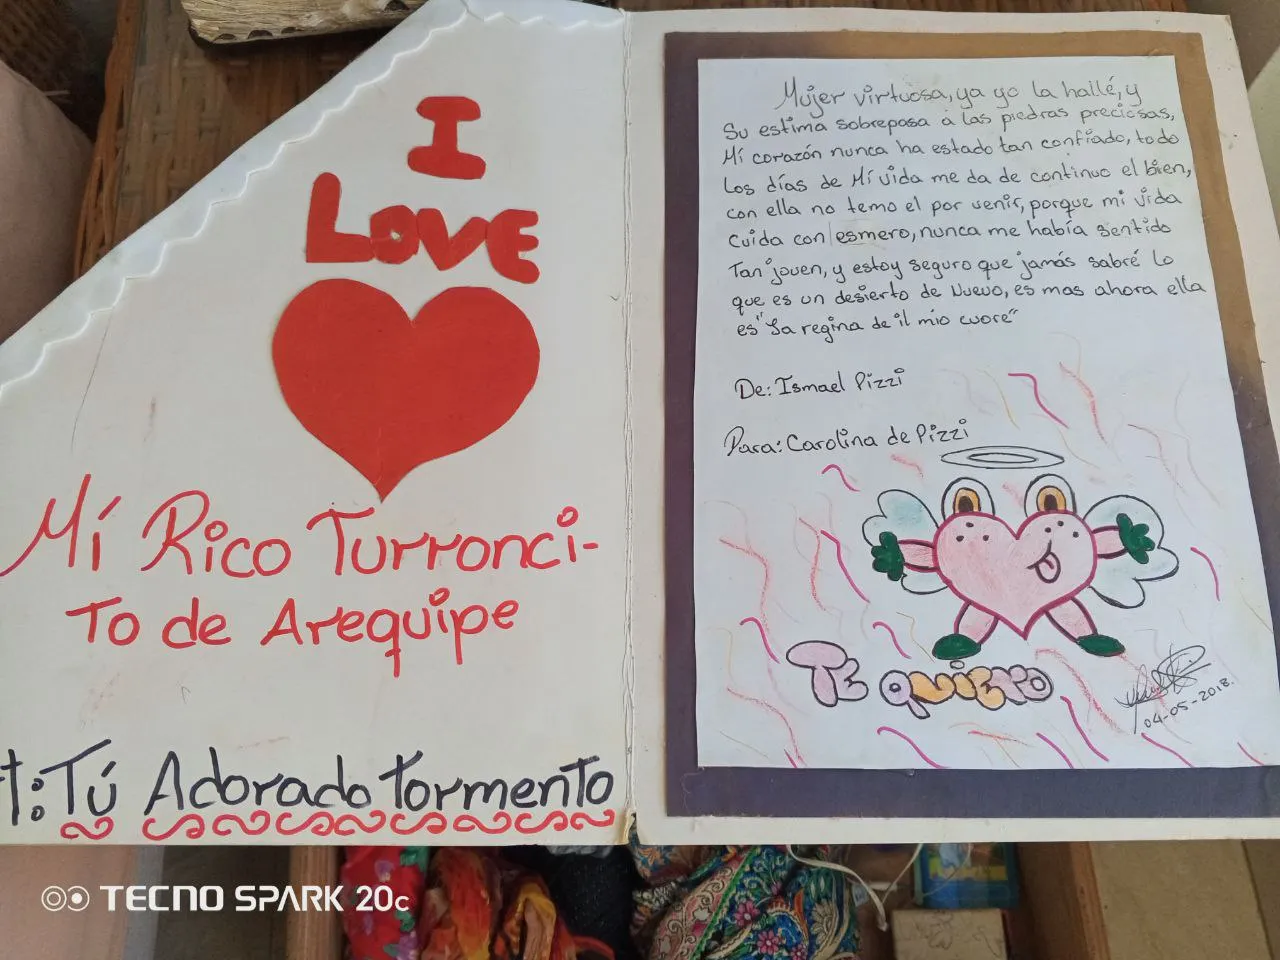 I
LOVE
Mí Rico Turronci-
To de Arequipe
t: Tú Adorado tormento
Mujer virtuosa, ya yo la hallé, y
Su estima sobrepasa a las piedras preciosas,
Mí corazón nunca ha estado tan confiado, todo
Los días de Mí vida me da de continuo el bien,
con ella no temo el por venir, porque mi vida
cuida con esmero, nunca me había sentido
Tan joven, y estoy seguro que jamás sabré lo
que es un desierto de Nuevo, es mas ahora ella
es "La regina de il mio cuore"
De: Ismael Pizzi
Para: Carolina de Pizzi
TE QUIERO
04-05-2018.
TECNO SPARK 20C